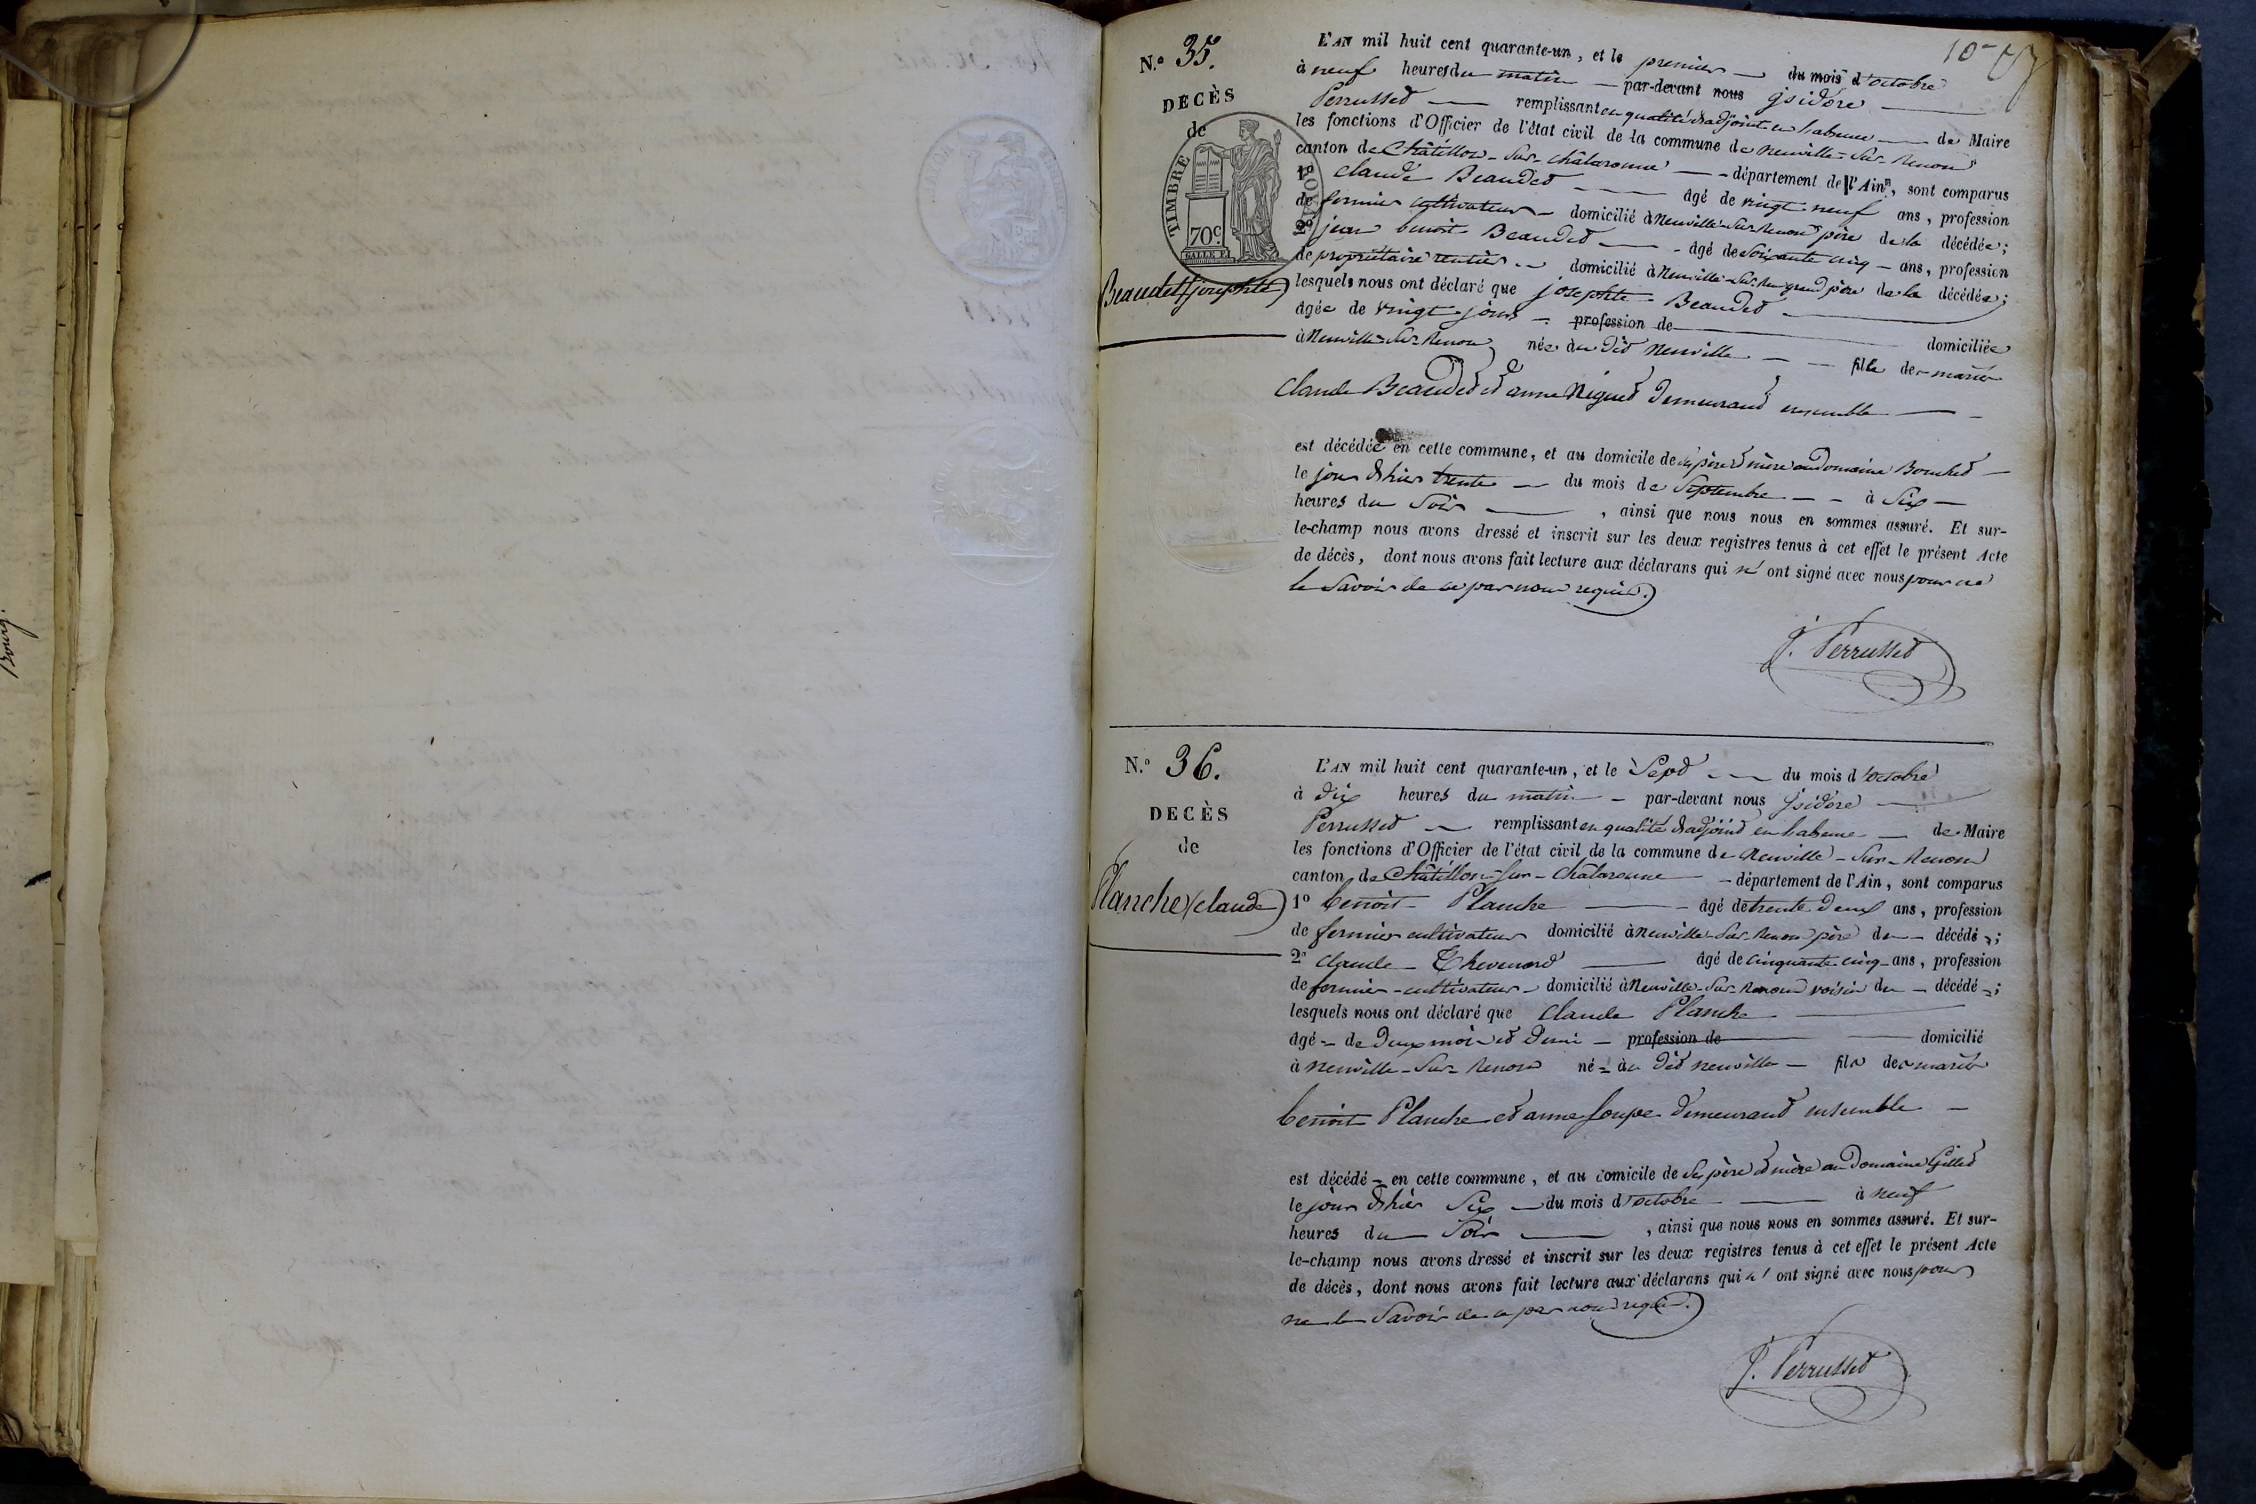 N.º 35.
DÉCÈS
de
TIMBRE ROYAL
70c
Beaudet (josephte)
L'AN mil huit cent quarante-un, et le premier du mois d'octobre
à neuf heures du matin par-devant nous jsidore
Perrusset remplissant en qualité d'adjoint en l'absence de Maire
les fonctions d'Officier de l'état civil de la commune de neuville-sur-Renon
canton de Châtillon-sur-chalaronne département de l'Ain, sont comparus
1º claude Beaudet âgé de vingt neuf ans, profession
de fermier cultivateur domicilié à neuville-sur-Renon père de la décédée;
2º jean benoit Beaudet âgé de soixante cinq ans, profession
de propriétaire rentier domicilié à neuville-sur-Ren grand père de la décédée;
lesquels nous ont déclaré que josephte Beaudet
âgée de vingt jours profession de domiciliée
à neuville-sur-Renon née au dit neuville fille des mariés
claude Beaudet et anne Niguet demeurant ensemble
est décédée en cette commune, et au domicile de ses père et mère au domaine Bouchet
le jour d'hier trente du mois de Septembre à Six
heures du Soir, ainsi que nous nous en sommes assuré. Et sur-
le-champ nous avons dressé et inscrit sur les deux registres tenus à cet effet le présent Acte
de décès, dont nous avons fait lecture aux déclarans qui n'ont signé avec nous pour ne
le savoir de ce par nous requis.
J. Perrusset
N.º 36.
DECÈS
de
Planche (claude)
L'AN mil huit cent quarante-un, et le Sept du mois d'octobre
à dix heures du matin par-devant nous jsidore
Perrusset remplissant en qualité d'adjoint en l'absence de Maire
les fonctions d'Officier de l'état civil de la commune de neuville-sur-Renon
canton de Châtillon-sur-chalaronne département de l'Ain, sont comparus
1º benoit Planche âgé de trente deux ans, profession
de fermier cultivateur domicilié à neuville-sur-Renon père du décédé;
2º claude Thevenard âgé de cinquante cinq ans, profession
de fermier-cultivateur domicilié à neuville-sur-Renon voisin du décédé;
lesquels nous ont déclaré que claude Planche
âgé de deux mois et demi profession de domicilié
à neuville-sur-Renon né au dit neuville fils des mariés
benoit Planche et anne Loupe demeurant ensemble
est décédé en cette commune, et au domicile de Ses père et mère au domaine Gillet
le jour d'hier Six du mois d'octobre à neuf
heures du Soir, ainsi que nous nous en sommes assuré. Et sur-
le-champ nous avons dressé et inscrit sur les deux registres tenus à cet effet le présent Acte
de décès, dont nous avons fait lecture aux déclarans qui n'ont signé avec nous pour
ne le savoir de ce par nous requis.
J. Perrusset